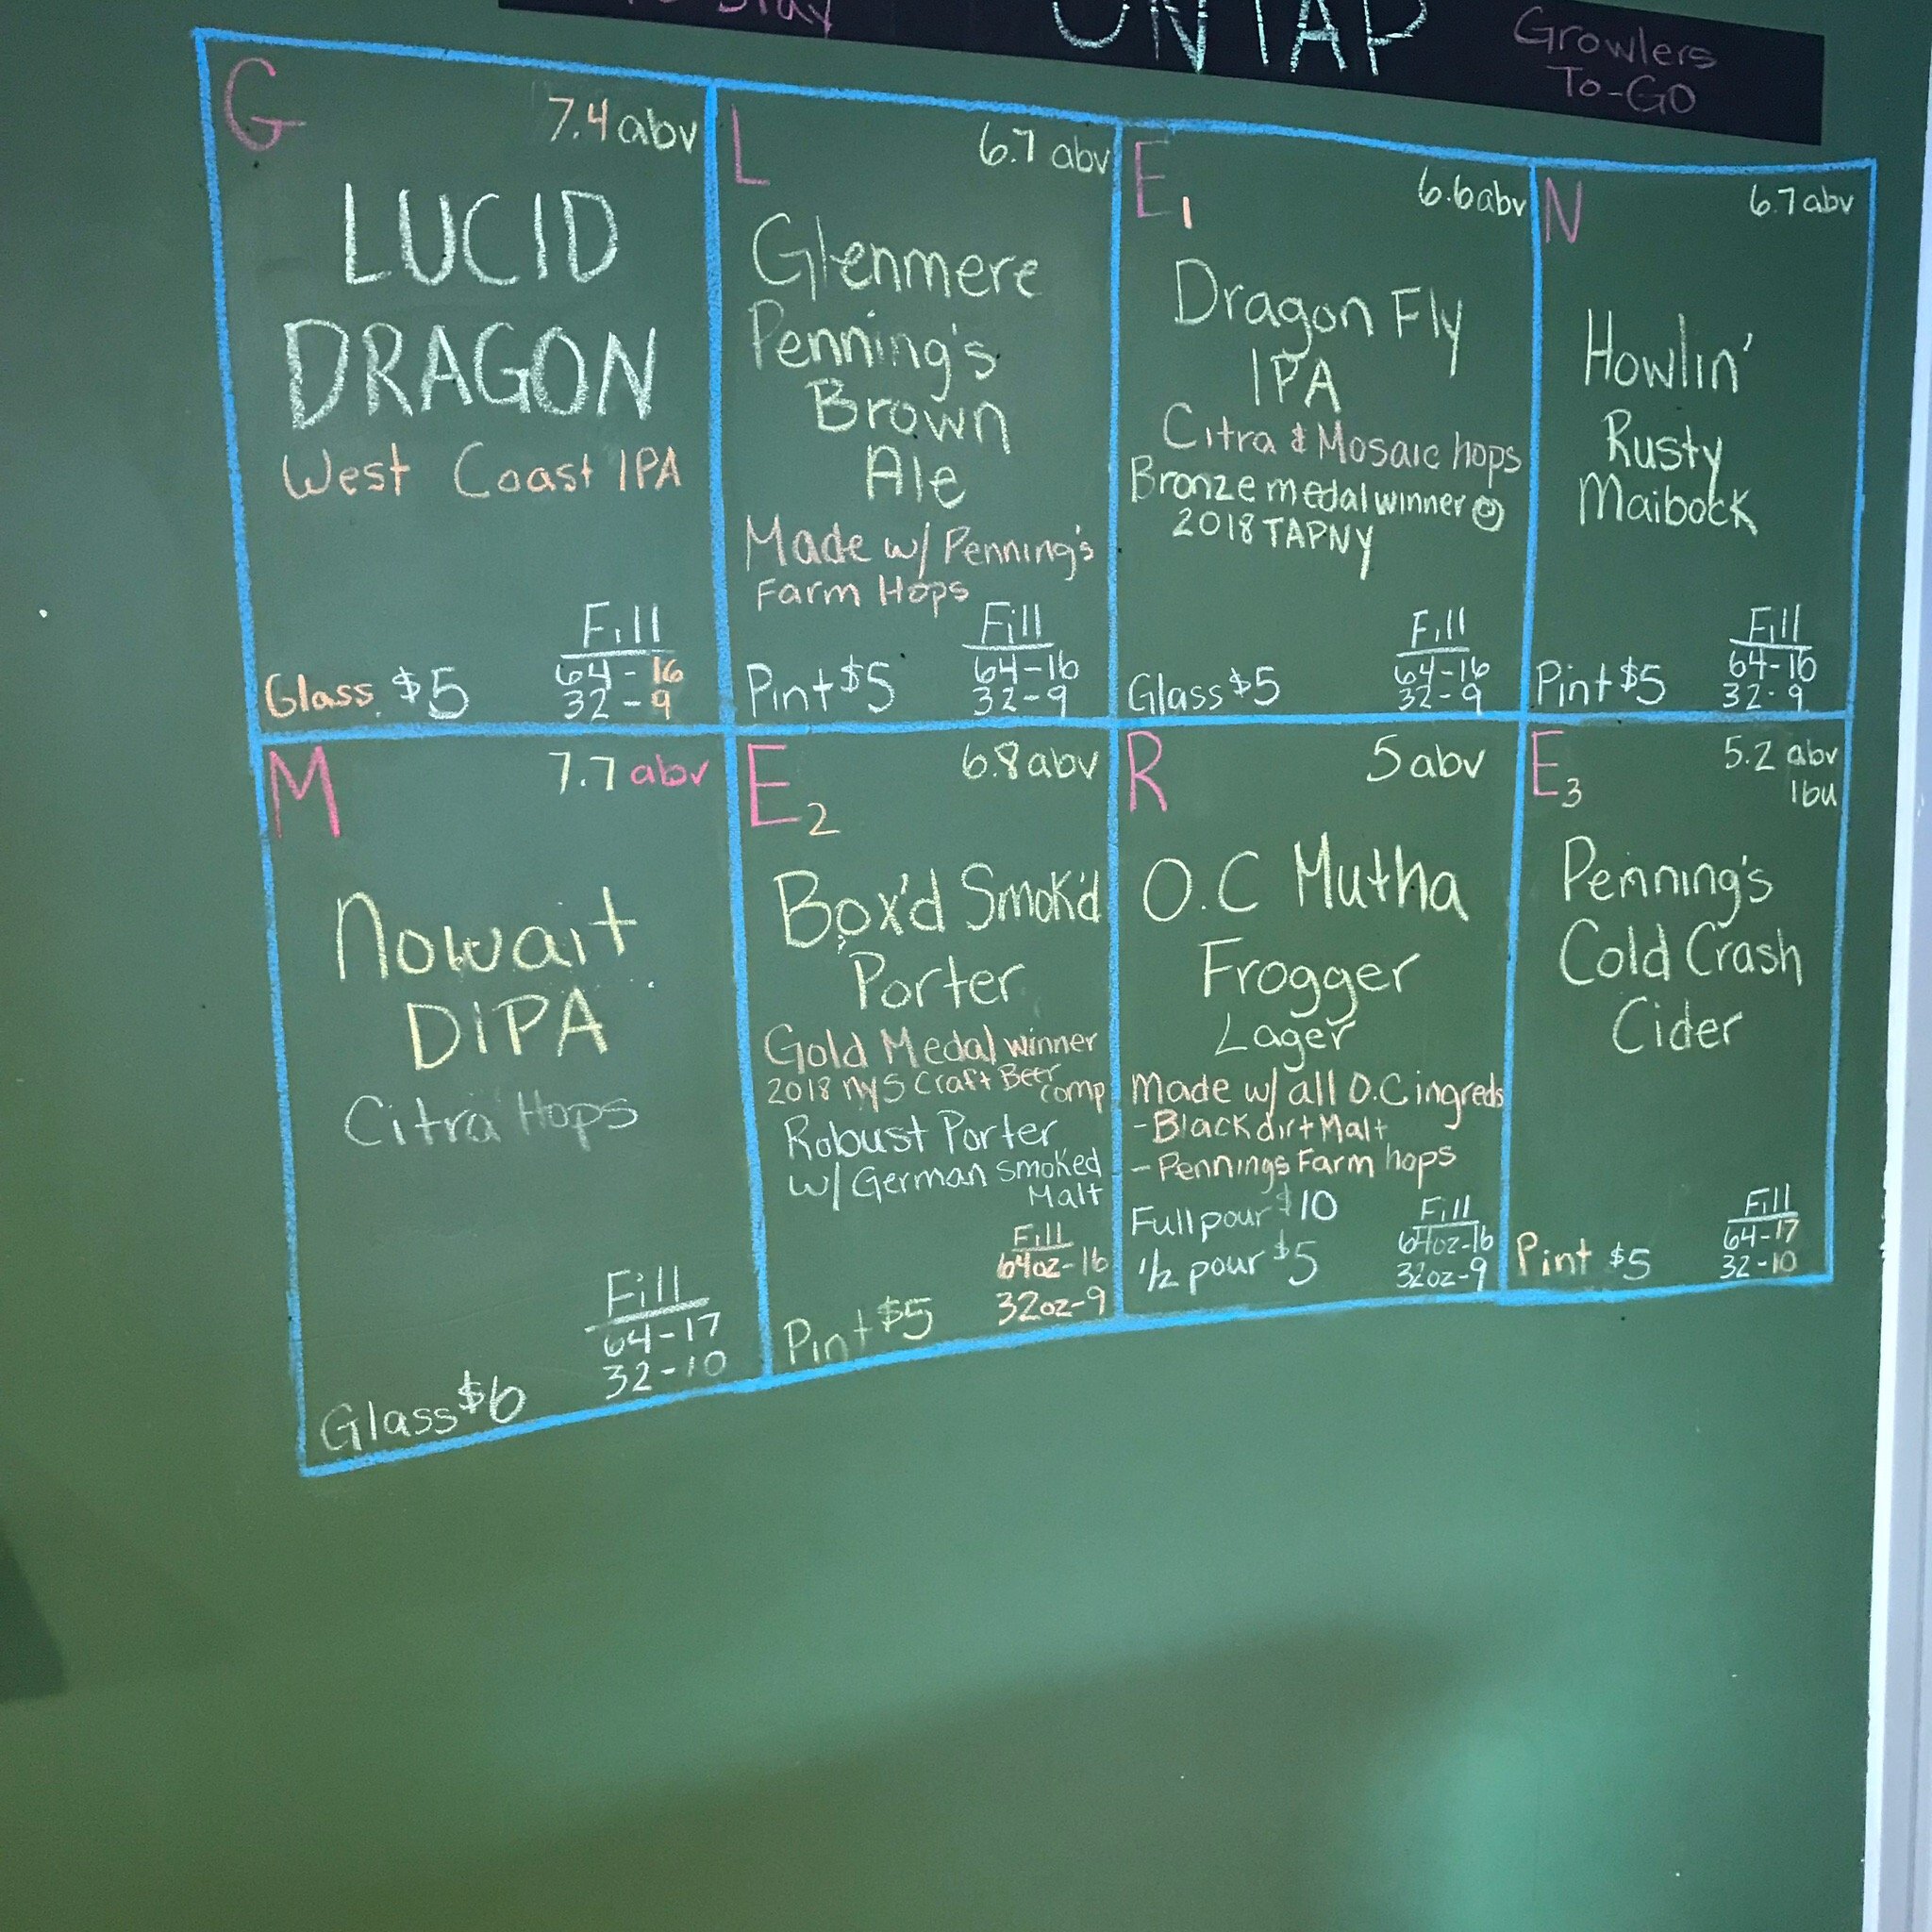 ON TAP
Growlers
To-GO
G
7.4 abv
LUCID
DRAGON
West Coast IPA
Fill
64-16
32-9
Glass $5
L
6.7 abv
Glenmere
Penning's
Brown
Ale
Made w/ Penning's
Farm Hops
Fill
64-16
32-9
Pint $5
E1
6.6 abv
Dragon Fly
IPA
Citra & Mosaic hops
Bronze medal winner @
2018 TAPNY
Fill
64-16
32-9
Glass $5
N
6.7 abv
Howlin'
Rusty
Maibock
Fill
64-16
32-9
Pint $5
M
7.7 abv
Nowait
DIPA
Citra Hops
Fill
64-17
32-10
Glass $6
E2
6.8 abv
Box'd Smok'd
Porter
Gold Medal winner
2018 NYS Craft Beer
comp
Robust Porter
w/ German smoked
Malt
Fill
64oz-16
32oz-9
Pint $5
R
5 abv
O.C Mutha
Frogger
Lager
Made w/ all O.C ingreds
-Black dirt Malt
-Pennings Farm hops
Full pour $10
1/2 pour $5
Fill
64oz-16
32oz-9
E3
5.2 abv
1bu
Penning's
Cold Crash
Cider
Fill
64-17
32-10
Pint $5